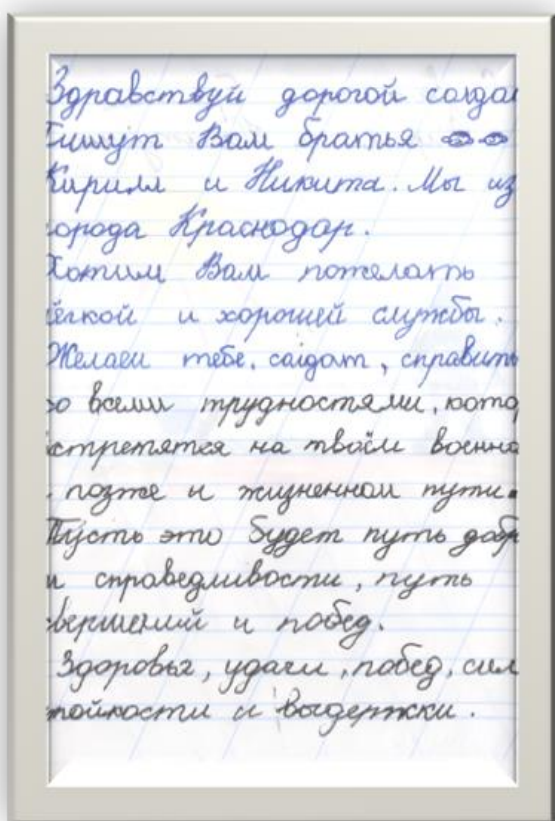 Здравствуй дорогой солда
Пишут Вам братья
Кирилл и Никита. Мы из
города Краснодар.
Хотим Вам пожелать
лёгкой и хорошей службы.
Желаем тебе, салдат, справить
со всеми трудностями, кото
встретятся на твоём военно
, позже и жизненном пути.
Пусть это будет путь добр
и справедливости, путь
свершений и побед.
Здоровья, удачи, побед, сил
тойкости и выдержки.